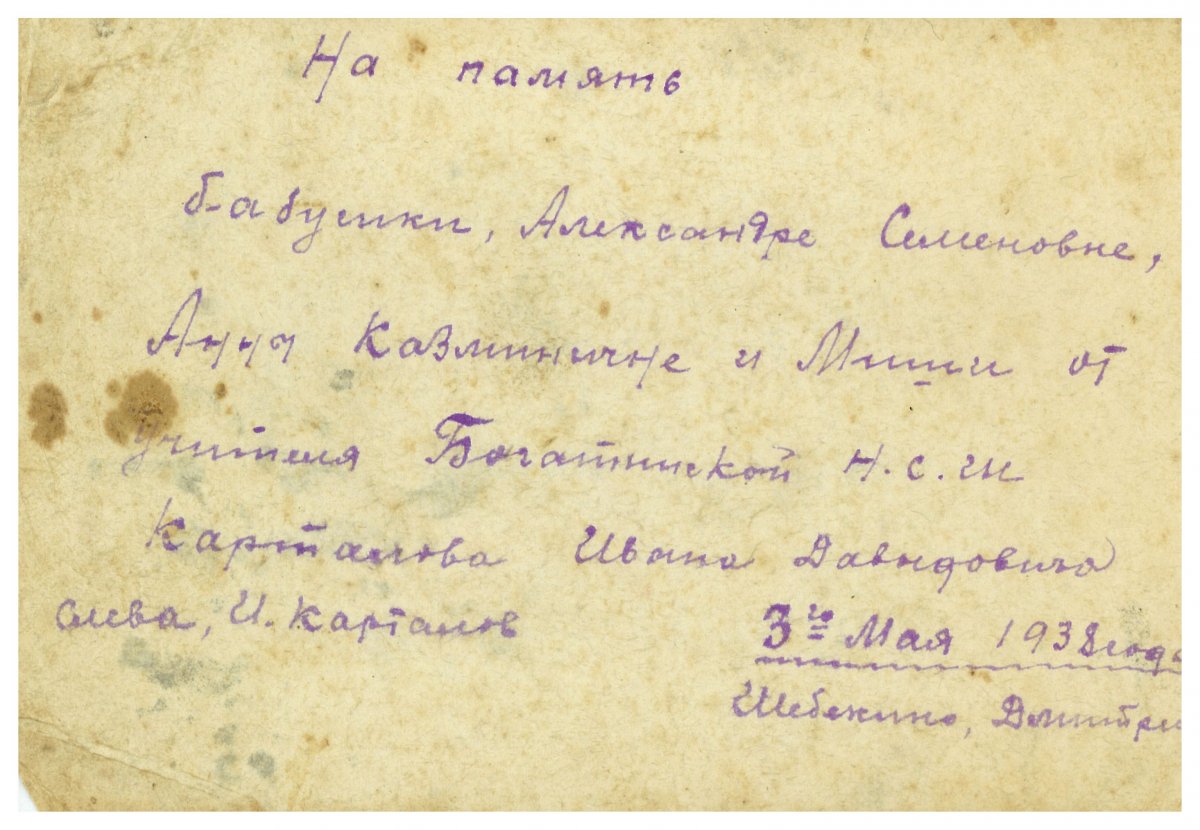 На память
бабушки, Александре Семеновне,
Анни Казминичне и Миши от
учителя Богатинской Н.С.Ш
Карталова Ивана Давыдовича
слева, И. Карталов
3го Мая 1938 года
Шебекино, Дмитри